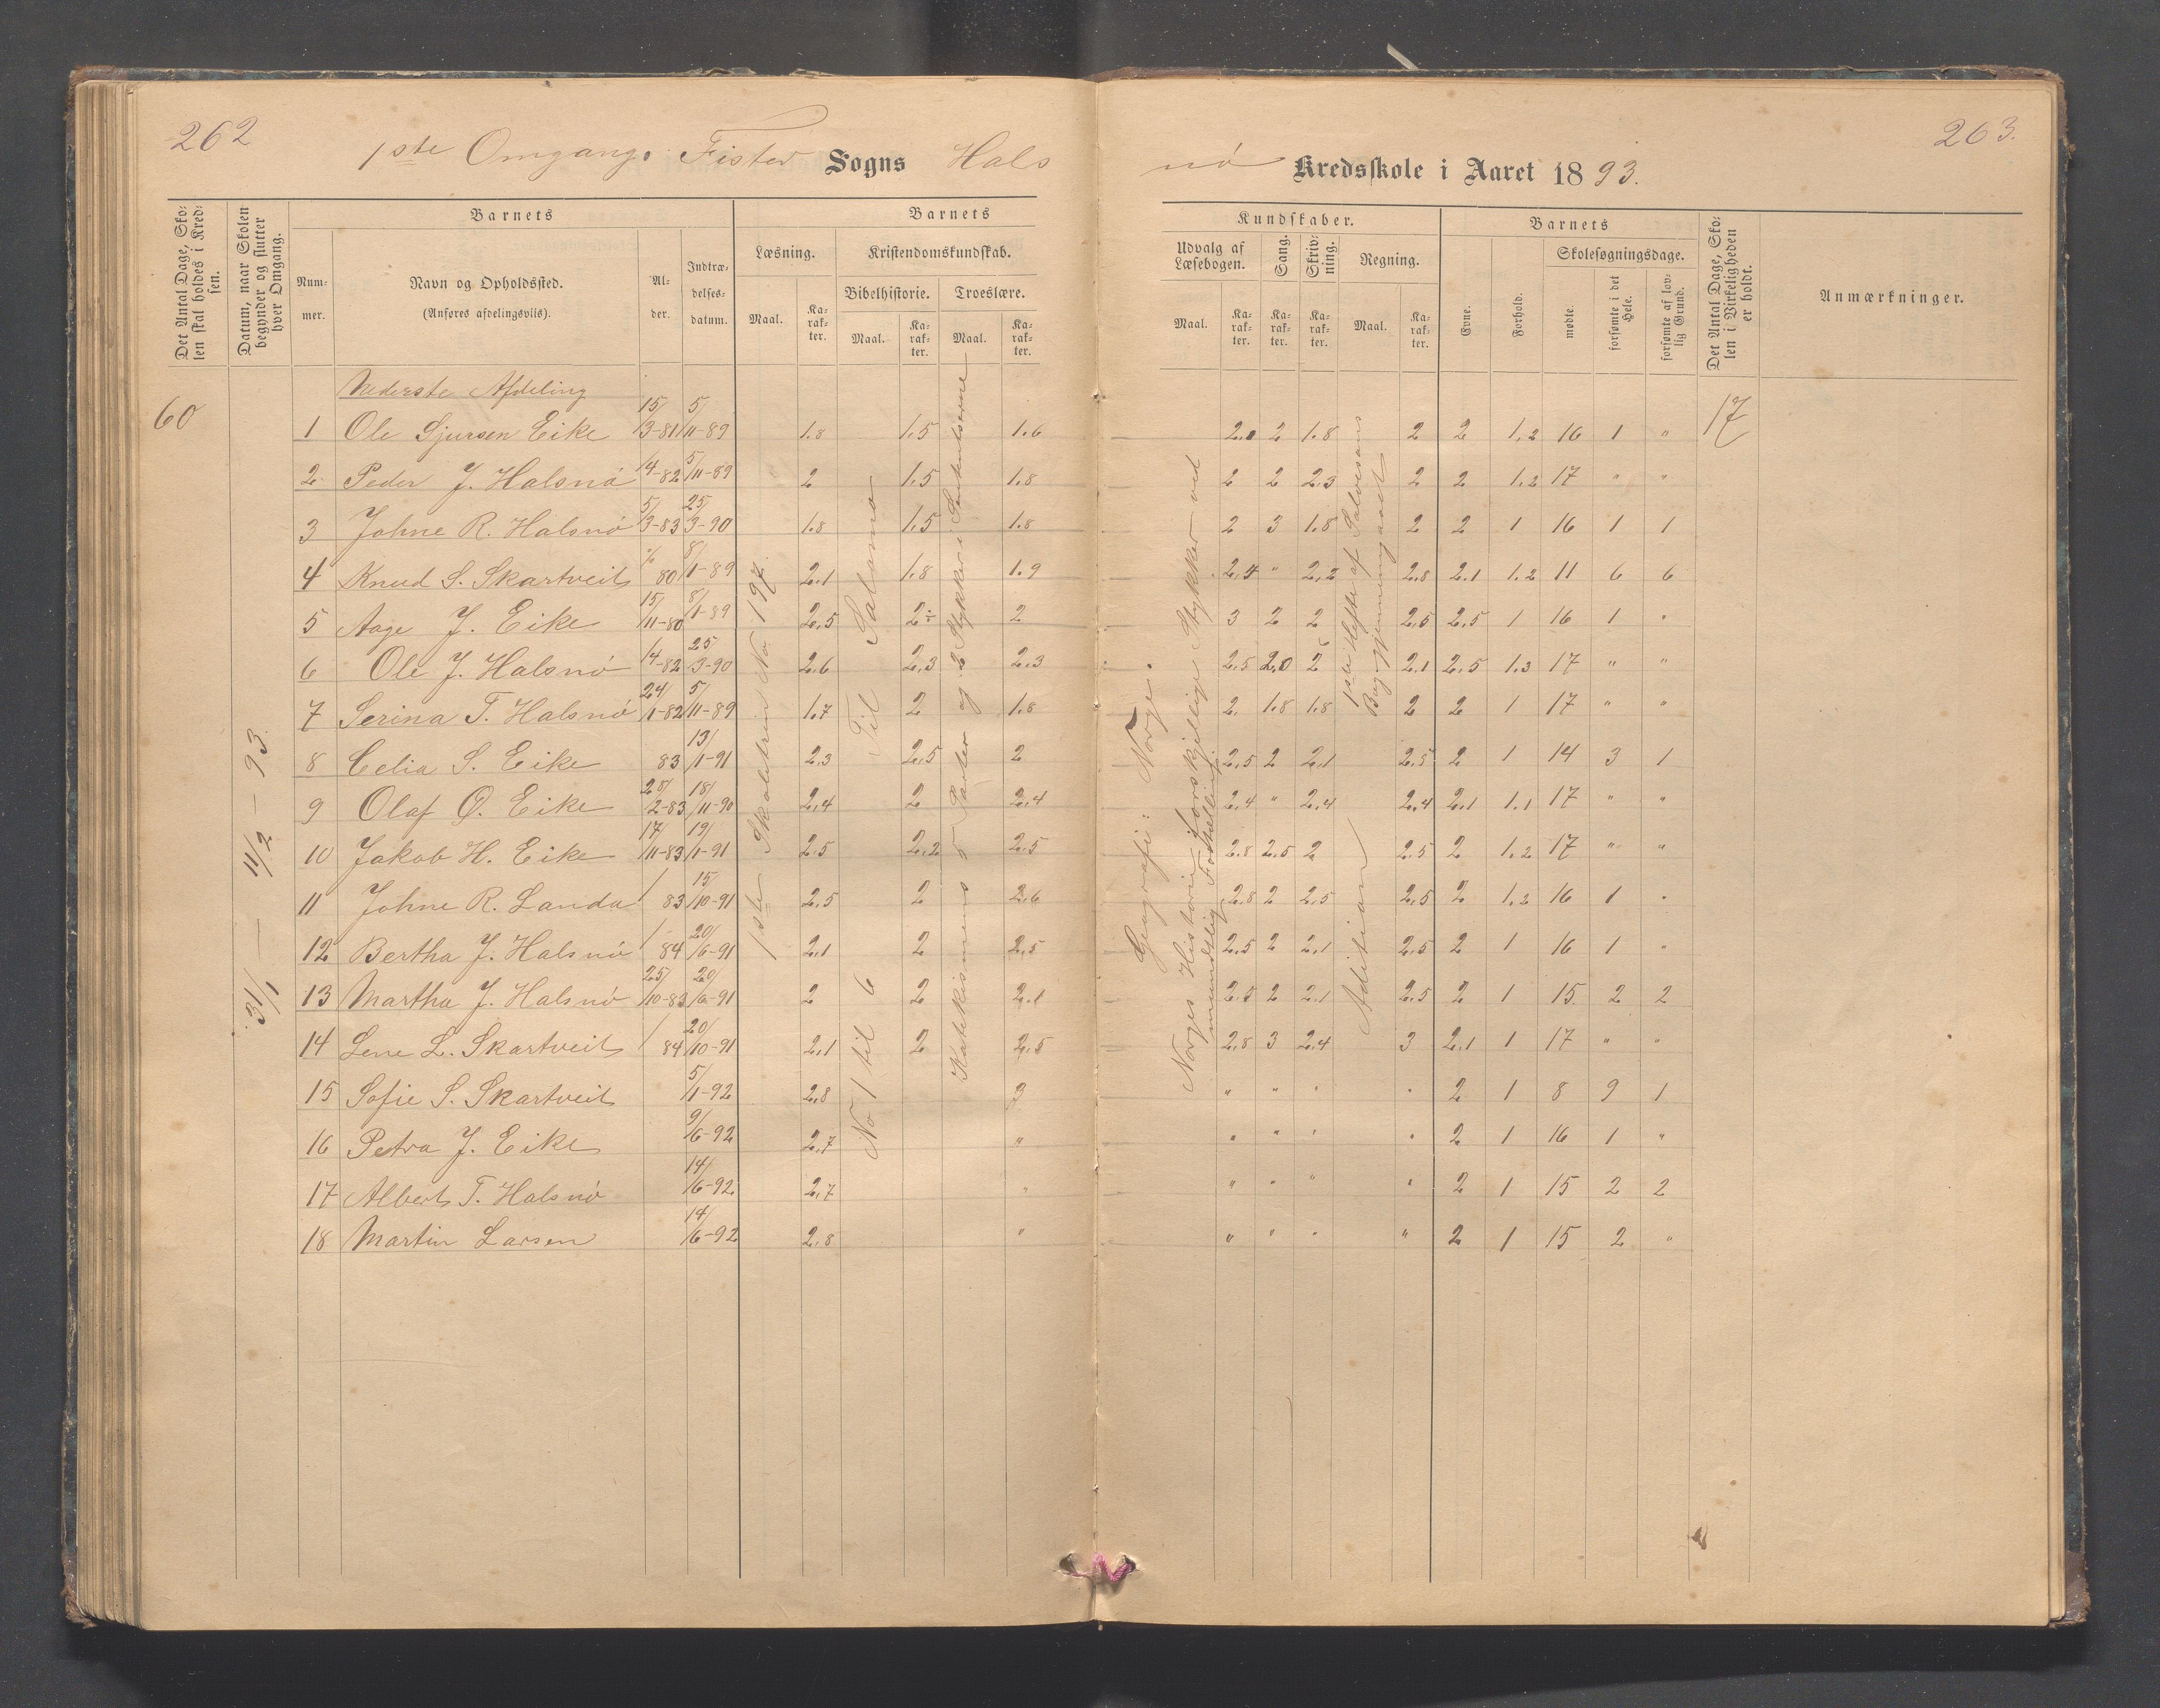 262
263.
1ste Omgang. Fister Sogns Halsnö Kredsskole i Aaret 1893.
Det Antal Dage, Skolen skal holdes i Kredsen.
Datum, naar Skolen begynder og slutter hver Omgang.
Barnets
Nummer.
Navn og Opholdssted.
(Anføres afdelingsviis).
Alder.
Indtrædelsesdatum.
Barnets
Læsning.
Kristendomskundskab.
Bibelhistorie.
Troeslære.
Maal.
Karakter.
Maal.
Karakter.
Maal.
Karakter.
Kundskaber.
Udvalg af Læsebogen.
Sang.
Skrivning.
Regning.
Maal.
Karakter.
Karakter.
Karakter.
Maal.
Karakter.
Barnets
Evne.
Forhold.
Skolesøgningsdage.
mødte.
forsømte i det Hele.
forsømte af lovlig Grund.
Det Antal Dage, Skolen i Virkeligheden er holdt.
Anmærkninger.
60
31/1 — 11/2 — 93.
Nederste Afdeling
1 Ole Sjursen Eike 15/3-81 5/11-89 1.8 1.5 1.6 2.0 2 1.8 2 2 1.2 16 1 " 17
2 Peder J. Halsnö 14-82 5/11-89 2 1.5 1.8 2 2 2.3 2 2 1.2 17 " "
3 Johne R. Halsnö 5/3-83 25/3-90 1.8 1.5 1.8 2 3 1.8 2 2 1 16 1 1
4 Knud S. Skartveit 80 8/1-89 2.1 1.8 1.9 2.4 " 2.2 2.8 2.1 1.2 11 6 6
5 Aage J. Eike 15/11-80 8/1-89 2.5 2÷ 2 3 2 2 2.5 2.5 1 16 1 "
6 Ole J. Halsnö 14-82 25/3-90 2.6 2.3 2.3 2.5 2.0 2 2.1 2.5 1.3 17 " "
7 Serina T. Halsnö 24/1-82 5/11-89 1.7 2 1.8 2. 1.8 1.8 2 2 1 17 " "
8 Celia S. Eike 83 13/1-91 2.3 2.5 2 2.5 2 2.1 2.5 2 1 14 3 1
9 Olaf Ø. Eike 25/2-83 18/11-90 2.4 2 2.4 2.4 " 2.4 2.4 2.1 1.1 17 " "
10 Jakob H. Eike 17/11-83 19/1-91 2.5 2.2 2.5 2.8 2.5 2 2.5 2 1.2 17 " "
11 Johne R. Landa 83 15/10-91 2.5 2 2.6 2.8 2 2.5 2.5 2 1.2 16 1 "
12 Bertha J. Halsnö 84 20/6-91 2.1 2 2.5 2.5 2 2.1 2.5 2 1 16 1 "
13 Martha J. Halsnö 25/10-83 20/6-91 2 2 2.1 2.5 2 2.1 2.5 2 1 15 2 2
14 Lene L. Skartveit 84 20/10-91 2.1 2 2.5 2.8 3 2.4 3 2.1 1 17 " "
15 Sofie S. Skartveit 5/1-92 2.8 3 " " " " 2 1 8 9 1
16 Petra J. Eike 9/6-92 2.7 " " " " " 2 1 16 1 "
17 Albert T. Halsnö 14/6-92 2.7 " " " " " 2 1 15 2 2
18 Martin Larsen 14/6-92 2.8 " " " " " 2 1 15 2 "
1ste Skoletrin No 197.
No 1 til 6 Til Salomo
Katekismens 5 Parter og 2 Stykker i
Geografi: Norge.
Norges Historie i forskjellige Stykker ved mundtlig Fortælling
Addition
1ste Hefte af gjennemgaaet